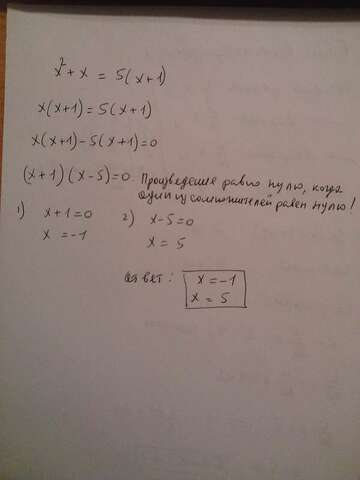 x² + x = 5(x+1)
x(x+1) = 5(x+1)
x(x+1) - 5(x+1) = 0
(x+1)(x-5) = 0. Произведение равно нулю, когда
один из сомножителей равен нулю!
1) x+1 = 0 2) x-5 = 0
x = -1 x = 5
ответ: x = -1
x = 5